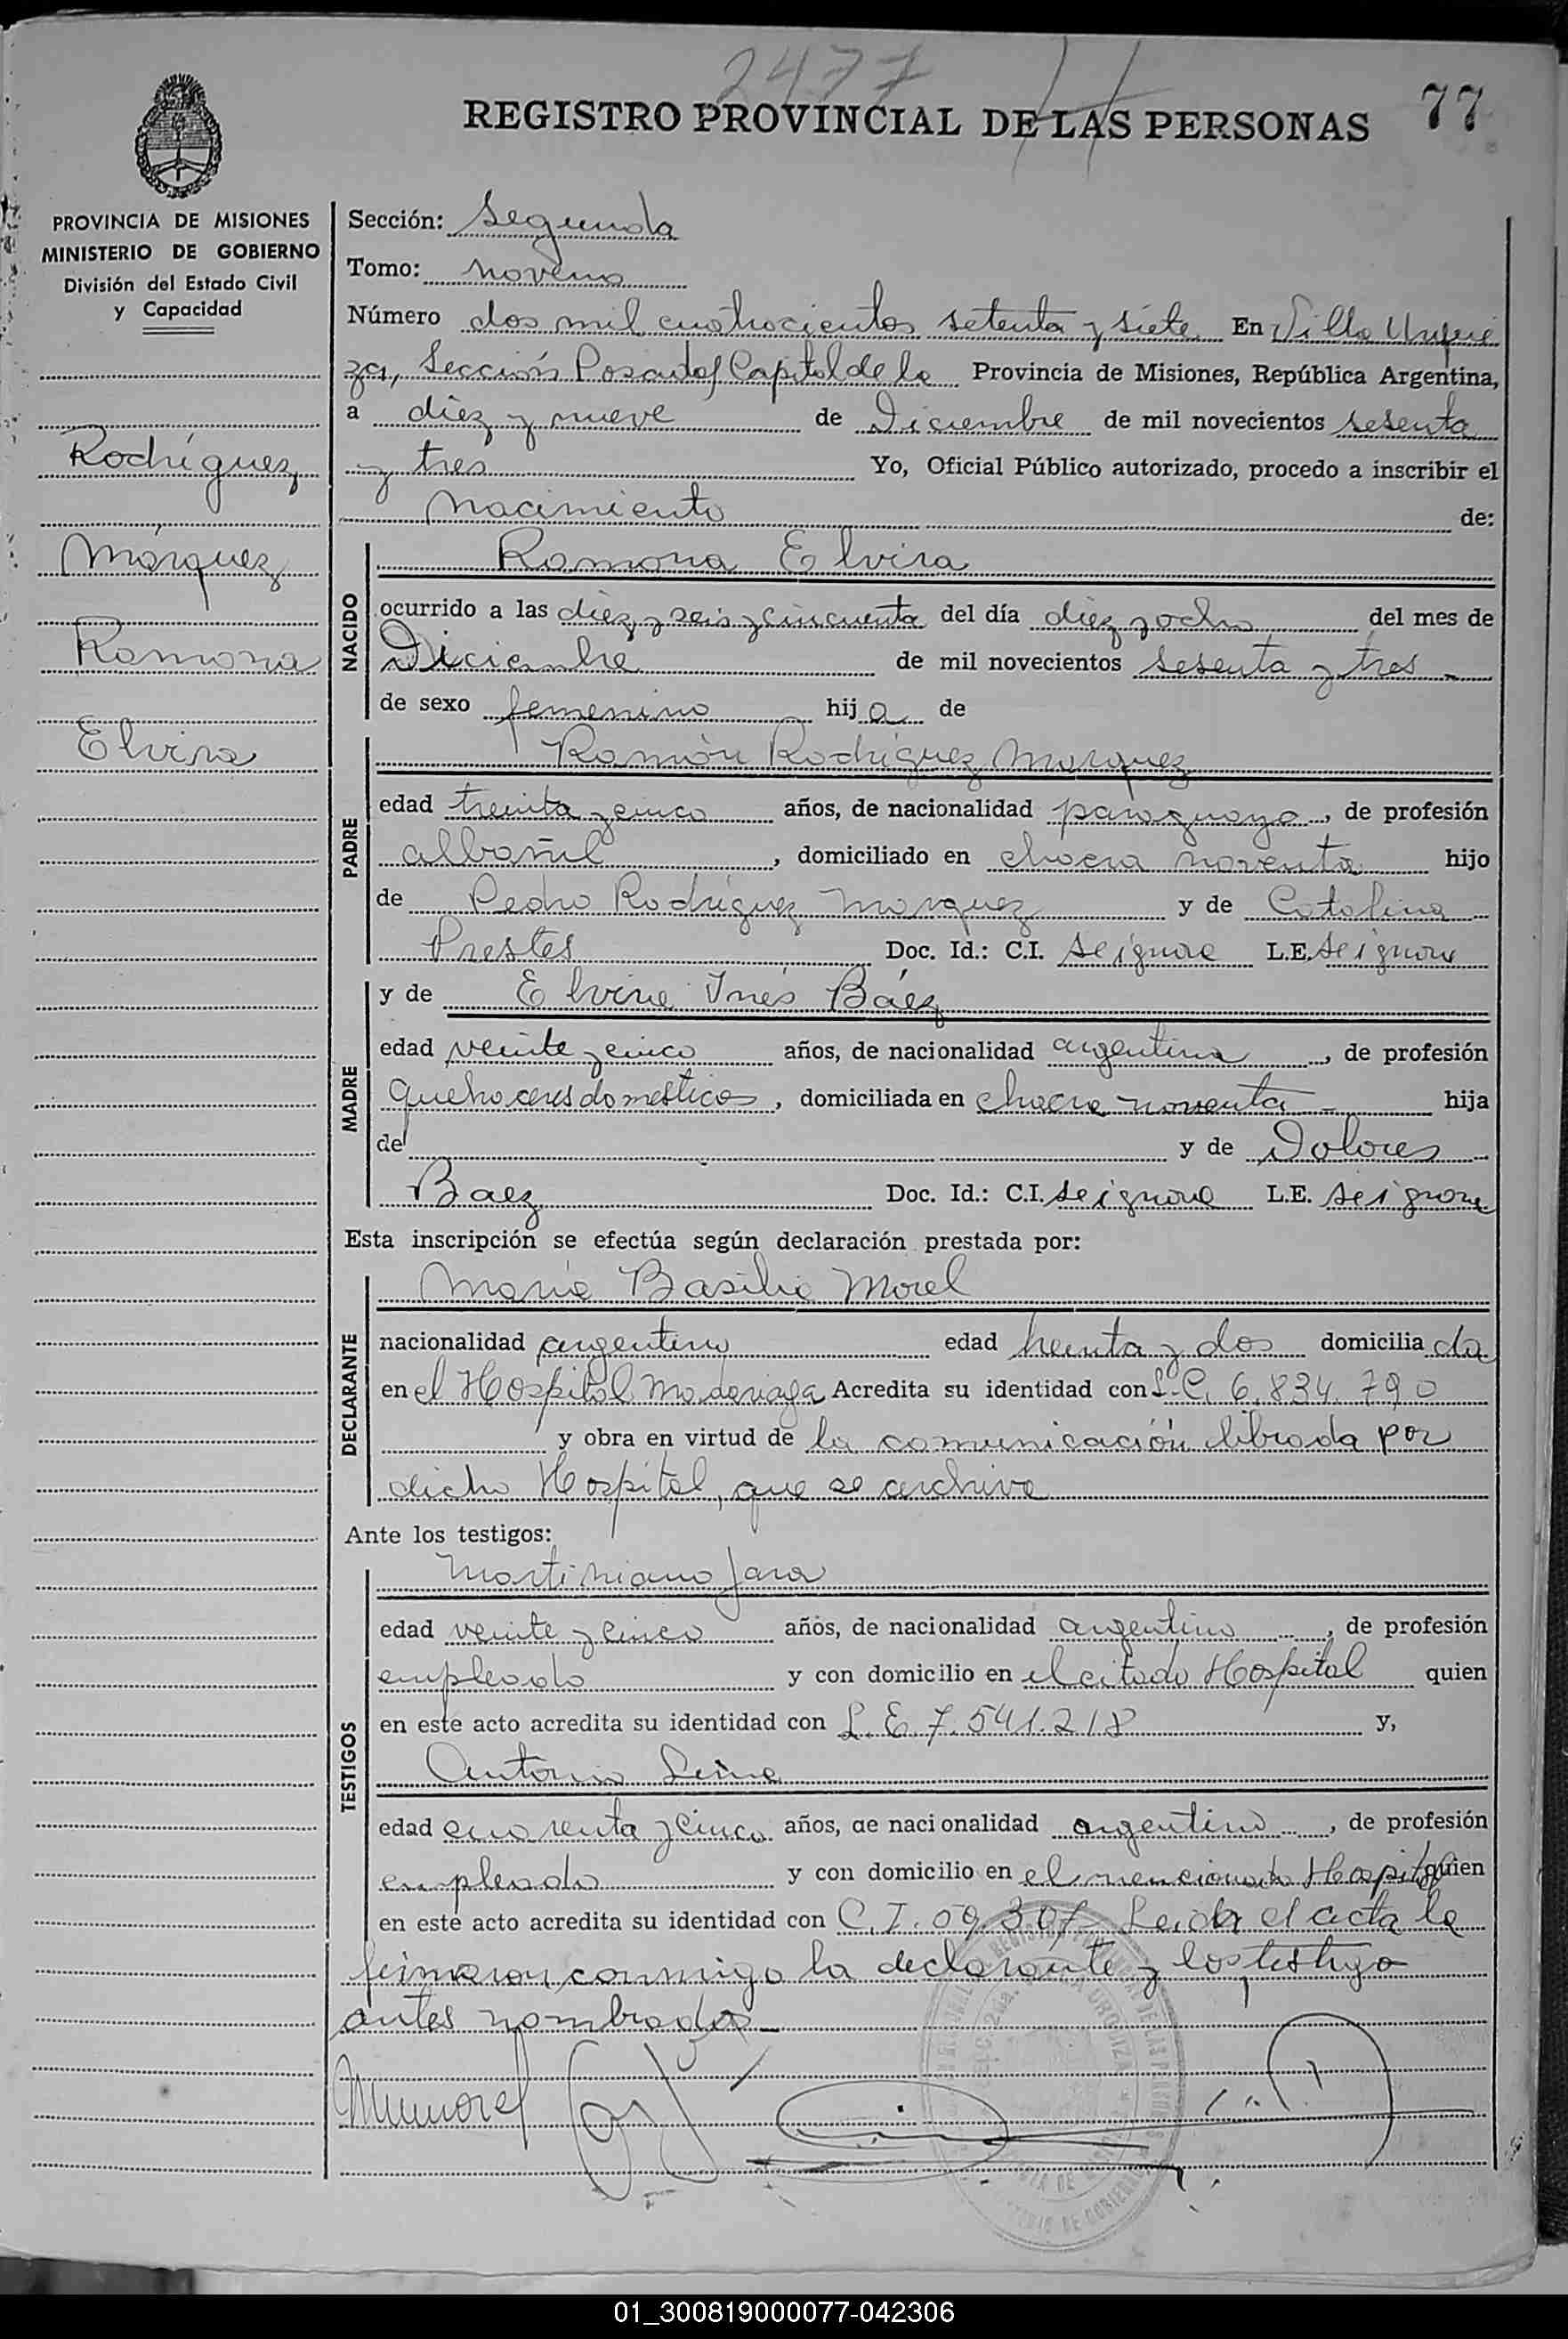 2477
REGISTRO PROVINCIAL DE LAS PERSONAS 77
PROVINCIA DE MISIONES
MINISTERIO DE GOBIERNO
División del Estado Civil
y Capacidad
Rodríguez
Márquez
Ramona
Elvira
Sección: Segunda
Tomo: noveno
Número dos mil cuatrocientos setenta y siete En Villa Urqui
za, Sección Posadas Capital de la Provincia de Misiones, República Argentina,
a diez y nueve de Diciembre de mil novecientos sesenta
y tres Yo, Oficial Público autorizado, procedo a inscribir el
nacimiento de:
NACIDO
Ramona Elvira
ocurrido a las diez y seis y cincuenta del día diez y ocho del mes de
Diciembre de mil novecientos sesenta y tres
de sexo femenino hija de
PADRE
Ramón Rodríguez Marquez
edad treinta y cinco años, de nacionalidad paraguaya, de profesión
albañil, domiciliado en chacra noventa hijo
de Pedro Rodríguez Marquez y de Catalina
Prestes Doc. Id.: C.I. se ignora L.E. se ignora
MADRE
y de Elvira Inés Báez
edad veinte y cinco años, de nacionalidad argentina, de profesión
quehaceres domesticos, domiciliada en chacra noventa hija
de y de Dolores
Baez Doc. Id.: C.I. se ignora L.E. se ignora
Esta inscripción se efectúa según declaración prestada por:
DECLARANTE
María Basilia Morel
nacionalidad argentina edad treinta y dos domiciliada
en el Hospital Madariaga Acredita su identidad con L.C. 6.834.790
y obra en virtud de la comunicación librada por
dicho Hospital, que se archiva
Ante los testigos:
TESTIGOS
Martiniano Jara
edad veinte y cinco años, de nacionalidad argentino, de profesión
empleado y con domicilio en el citado Hospital quien
en este acto acredita su identidad con L.E. 7.541.218 y,
Antonio
edad cuarenta y cinco años, de nacionalidad argentino, de profesión
empleado y con domicilio en el mencionado Hospital quien
en este acto acredita su identidad con C.I. 09.307 Leida el acta la
firmaron conmigo la declarante y los testigo
antes nombrados
01_300819000077-042306